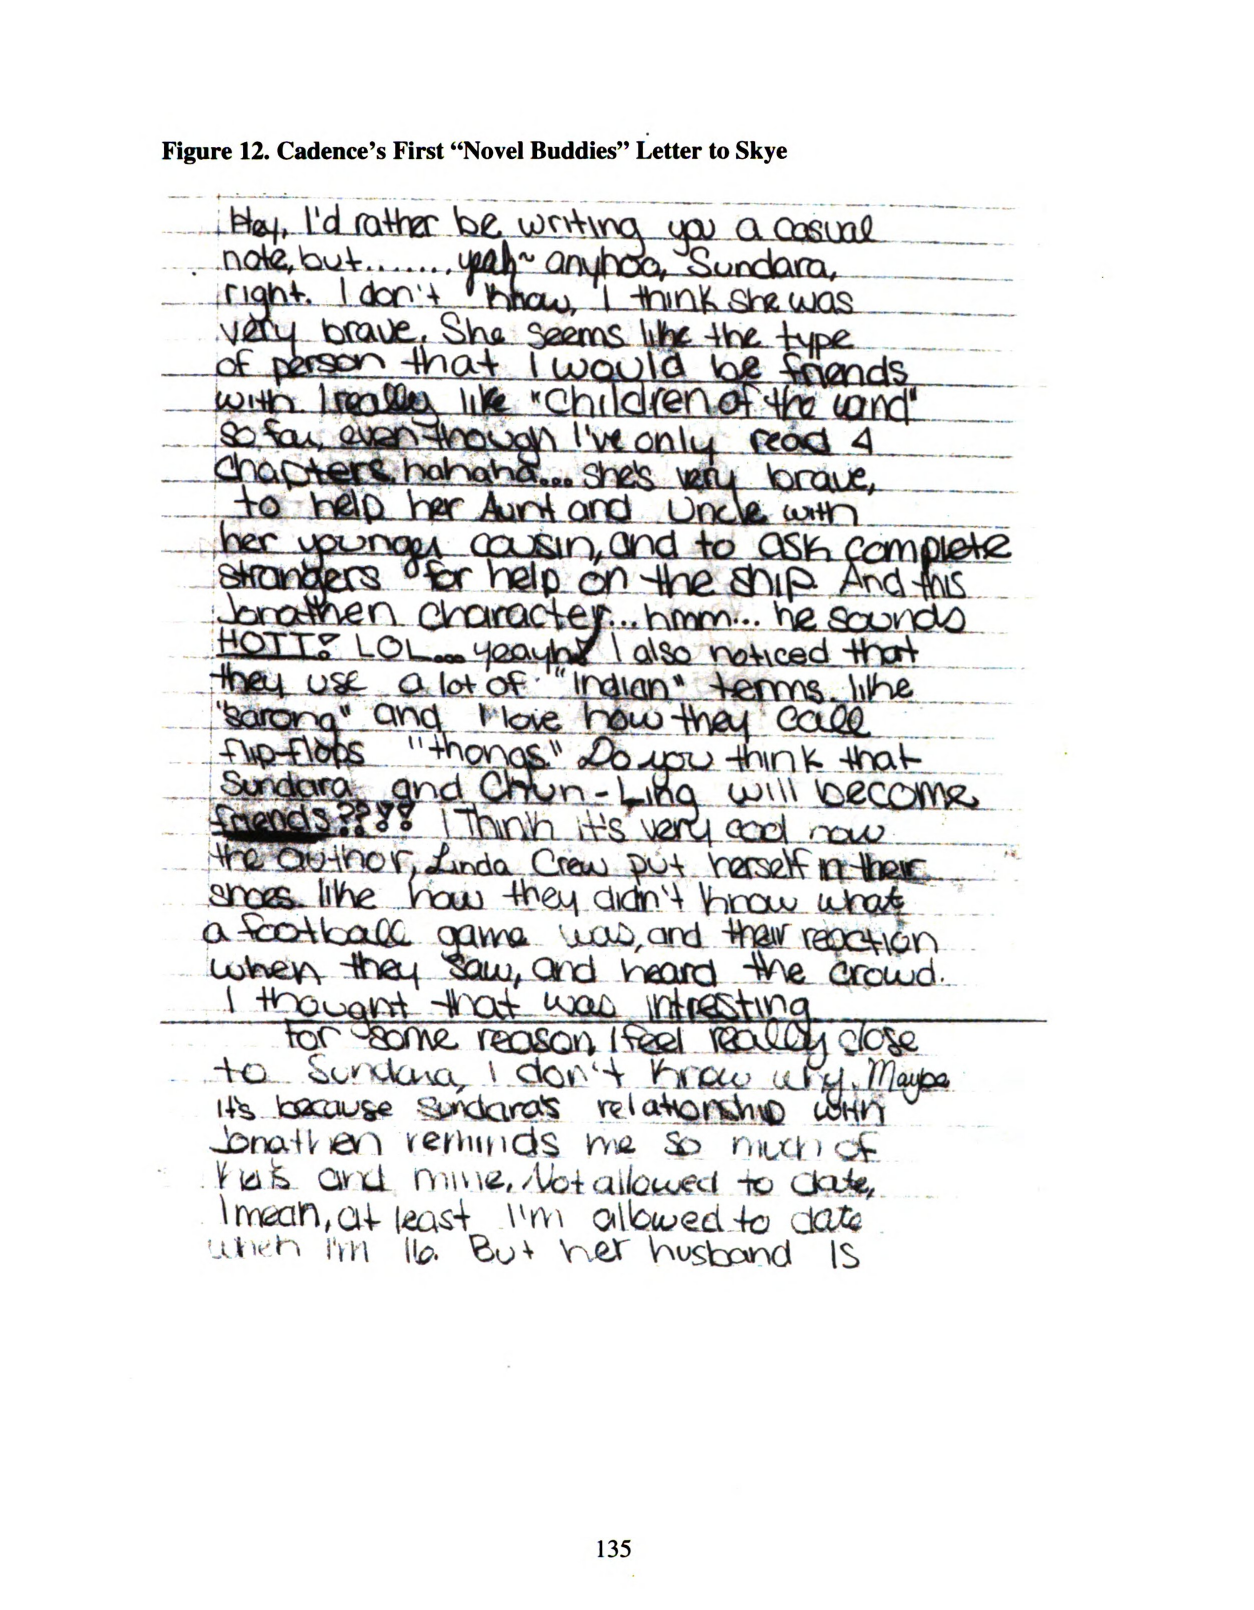 Figure 12. Cadence's First “Novel Buddies” Letter to Skye
Hey, I'd rather be writing you a casual
note, but........ yeah~ anyhoo, Sundara,
right. I don't know, I think she was
very brave. She seems like the type
of person that I would be friends
with. I really like "Children of the wind"
so far, even though I've only read 4
chapters, hahaha... she's very brave,
to help her Aunt and Uncle with
her younger cousin, and to ask complete
strangers for help on the ship. And this
Jonathen character... hmm... he sounds
HOTT! LOL... yeayh! I also noticed that
they use a lot of "Indian" terms. like
"sarong" and I love how they call
flip-flops "thongs." Do you think that
Sundara and Chun-Ling will become
friends??!! I think it's very cool how
the author, Linda Crew put herself in their
shoes. like how they didn't know what
a football game was, and their reaction
when they saw, and heard the crowd.
I thought that was intresting
For some reason, I feel really close
to Sundara, I don't know why. Maybe
it's because Sundara's relationship with
Jonathen reminds me so much of
and mine. Not allowed to date,
I mean, at least I'm allowed to date
when I'm 16. But her husband is
135